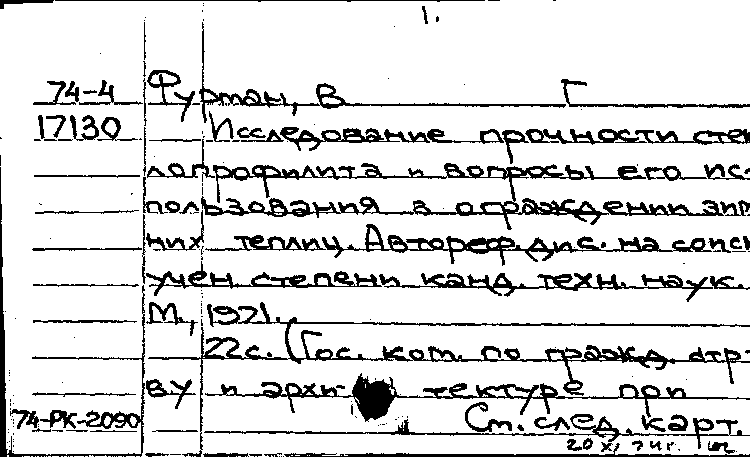 1.
74-4 Фурман, В Г
17130 Исследование прочности стек
лопрофилита и вопросы его ис-
пользования в ограждении зим
них теплиц. Автореф. дис. на соиск
учен степени канд. техн. наук.
М., 1971.
22с. (Гос. ком. по гражд. стр-
ву и архи- тектуре при
74-РК-2090 См. след. карт.
20 XI 74г.